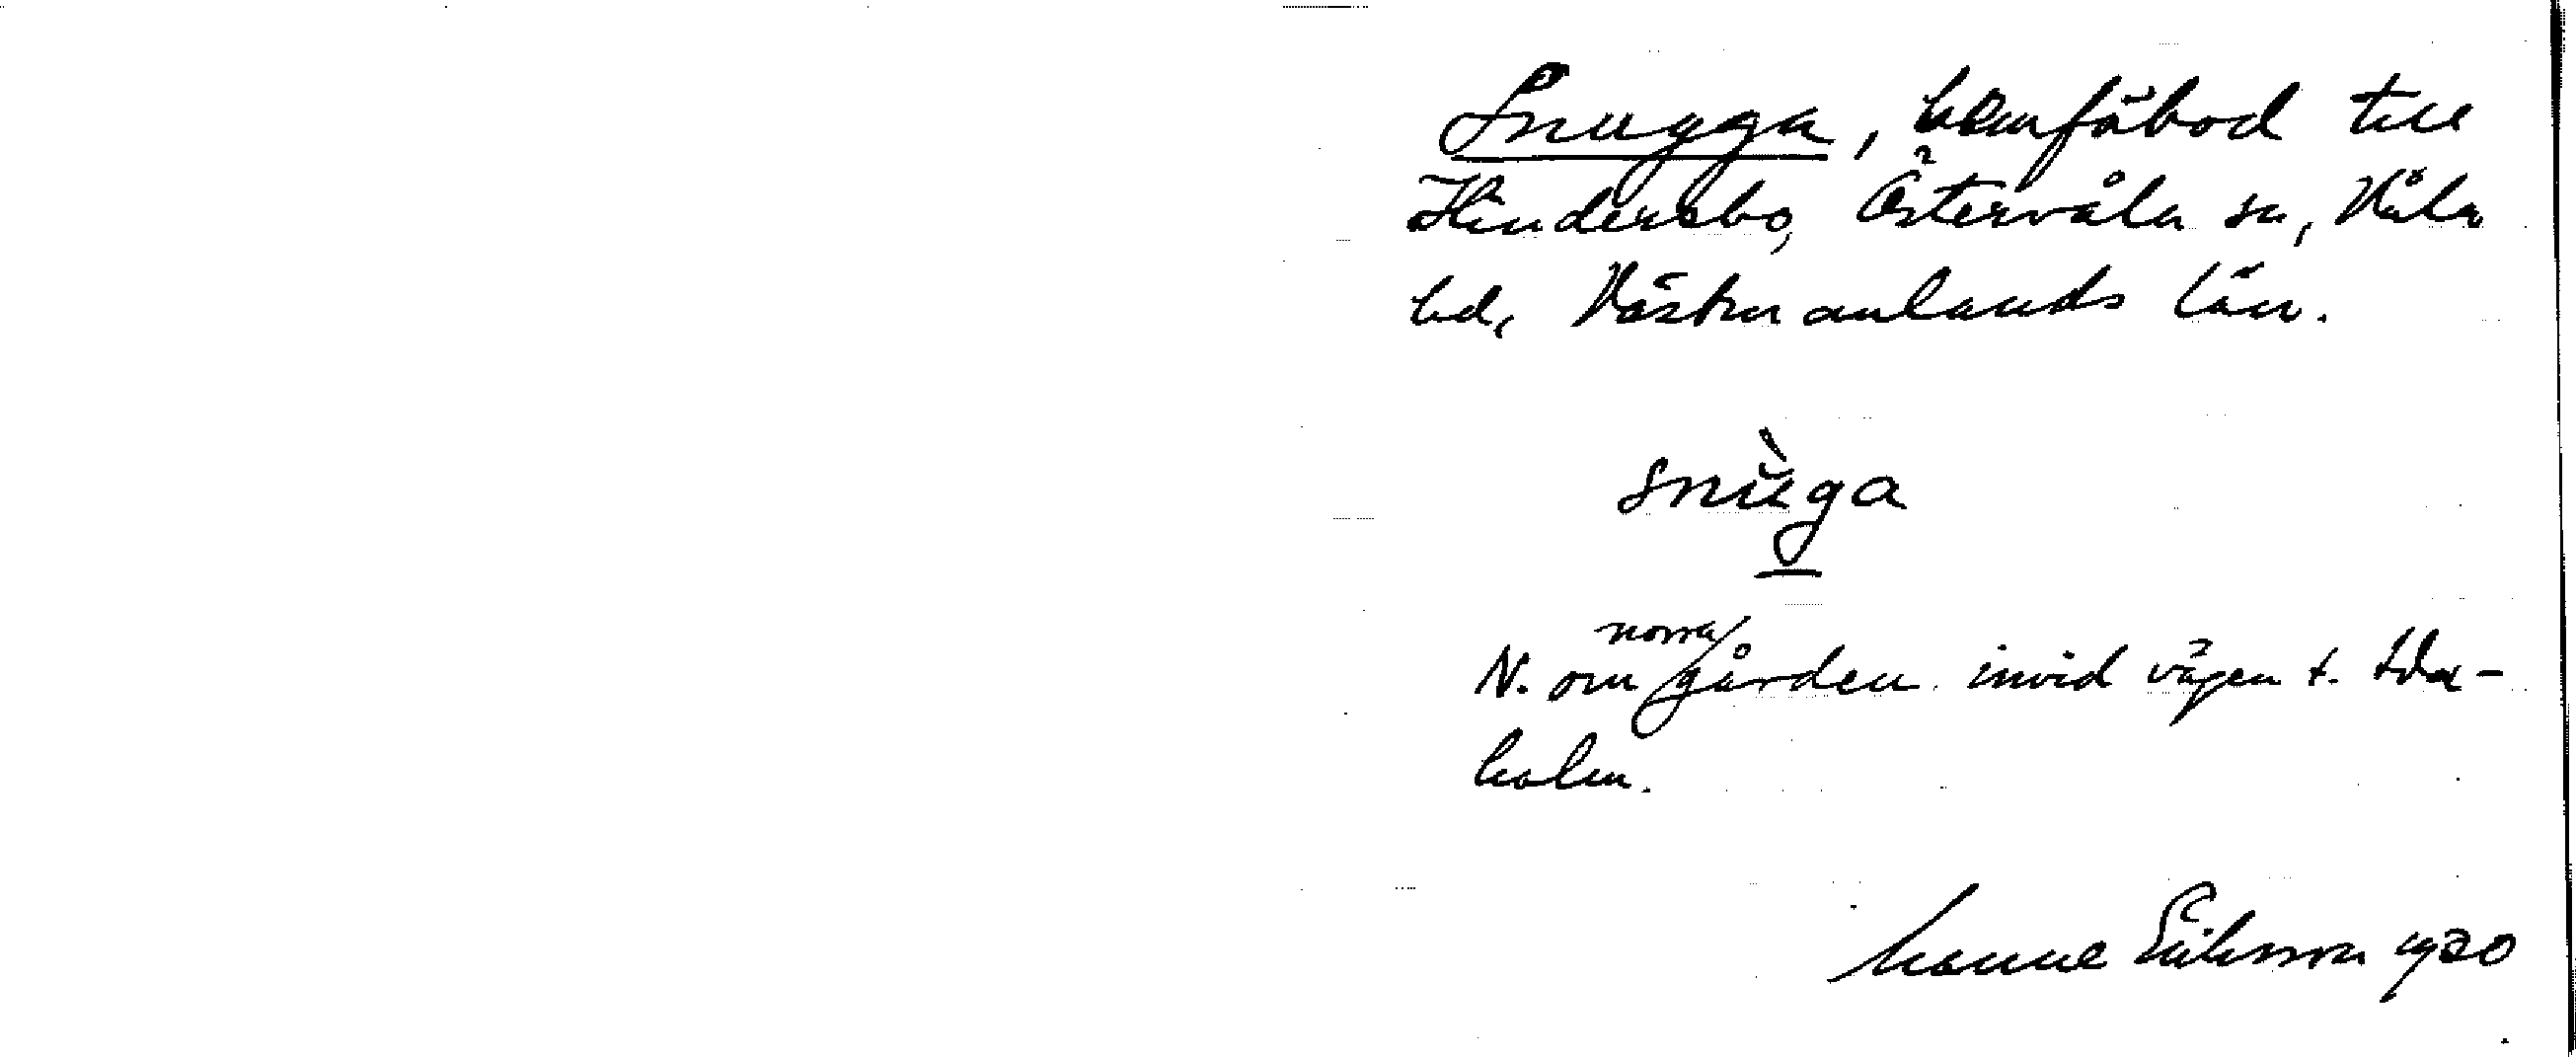 Snugga, hemfäbod till
Hindersbo, Östervåla sn, Våla
hd, Västmanlands län.
snŭ̀ga
N. om norra gården invid vägen t. Ida-
holm.
Manne Eriksson 1930